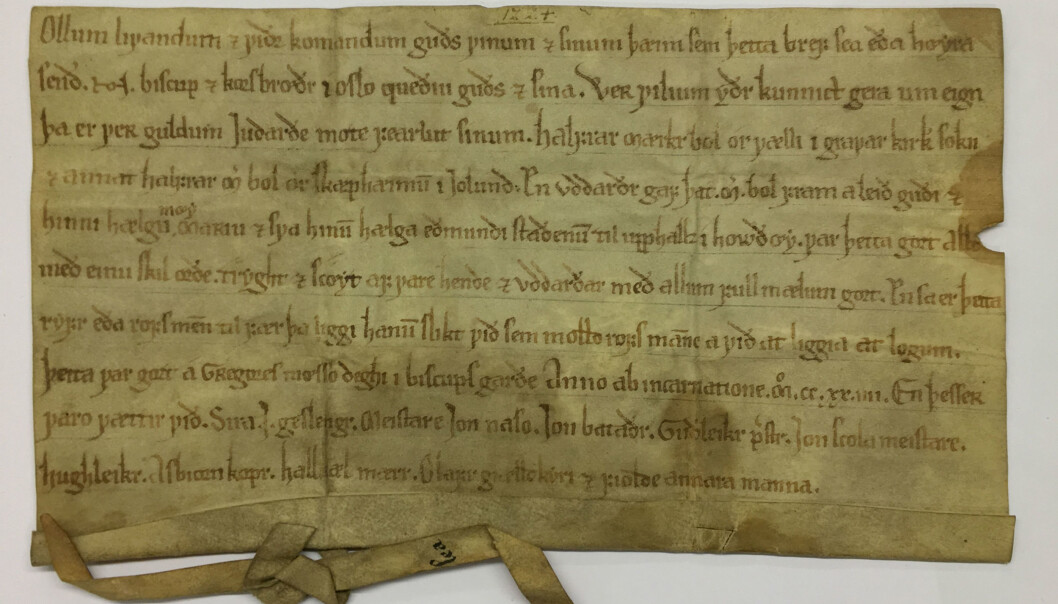 1224
Ollum livandum ⁊ viðr komandum guðs vinum ⁊ sinum þæim sem þetta bref sea eða høyra
send. biscup ⁊ korsbrøðr i oslo queðiu guðs ⁊ sina. Ver vilium yðr kunnict gera um eign
þa er ver guldum Juðarðe mote fearlut sinum. halfrar mærkr bol or vælli i gravar kirk soku
⁊ annat halfrar m bol or skæpharmū i Jolund. En vddarðr gaf þat. m. bol fram a leið guði ⁊
hinni hælgu møy mariu ⁊ sva hinū hælga eðmundi staðenū til upphallz i howðøy. var þetta gort allt
með einu skil orðe. tryght ⁊ scøyt af vare hende ⁊ vddarðar með allum full mælum gort. En sa er þetta
ryfr eða rofs men til fær þa liggi hanū slikt við sem motto rofs manne a við at liggia at logum.
þetta var gort a Gregores messo deghi i biscups garðe Anno ab incarnatione. m. cc. xx. iiii. En þesser
varo vattir við. Sira geslengr. Meistare Jon naso. Jon bataðr. Guðleikr pstr. Jon scola meistare.
hughleikr. Asbiorn kapr. hall mærr. Olafr ⁊ fiolde annara manna.